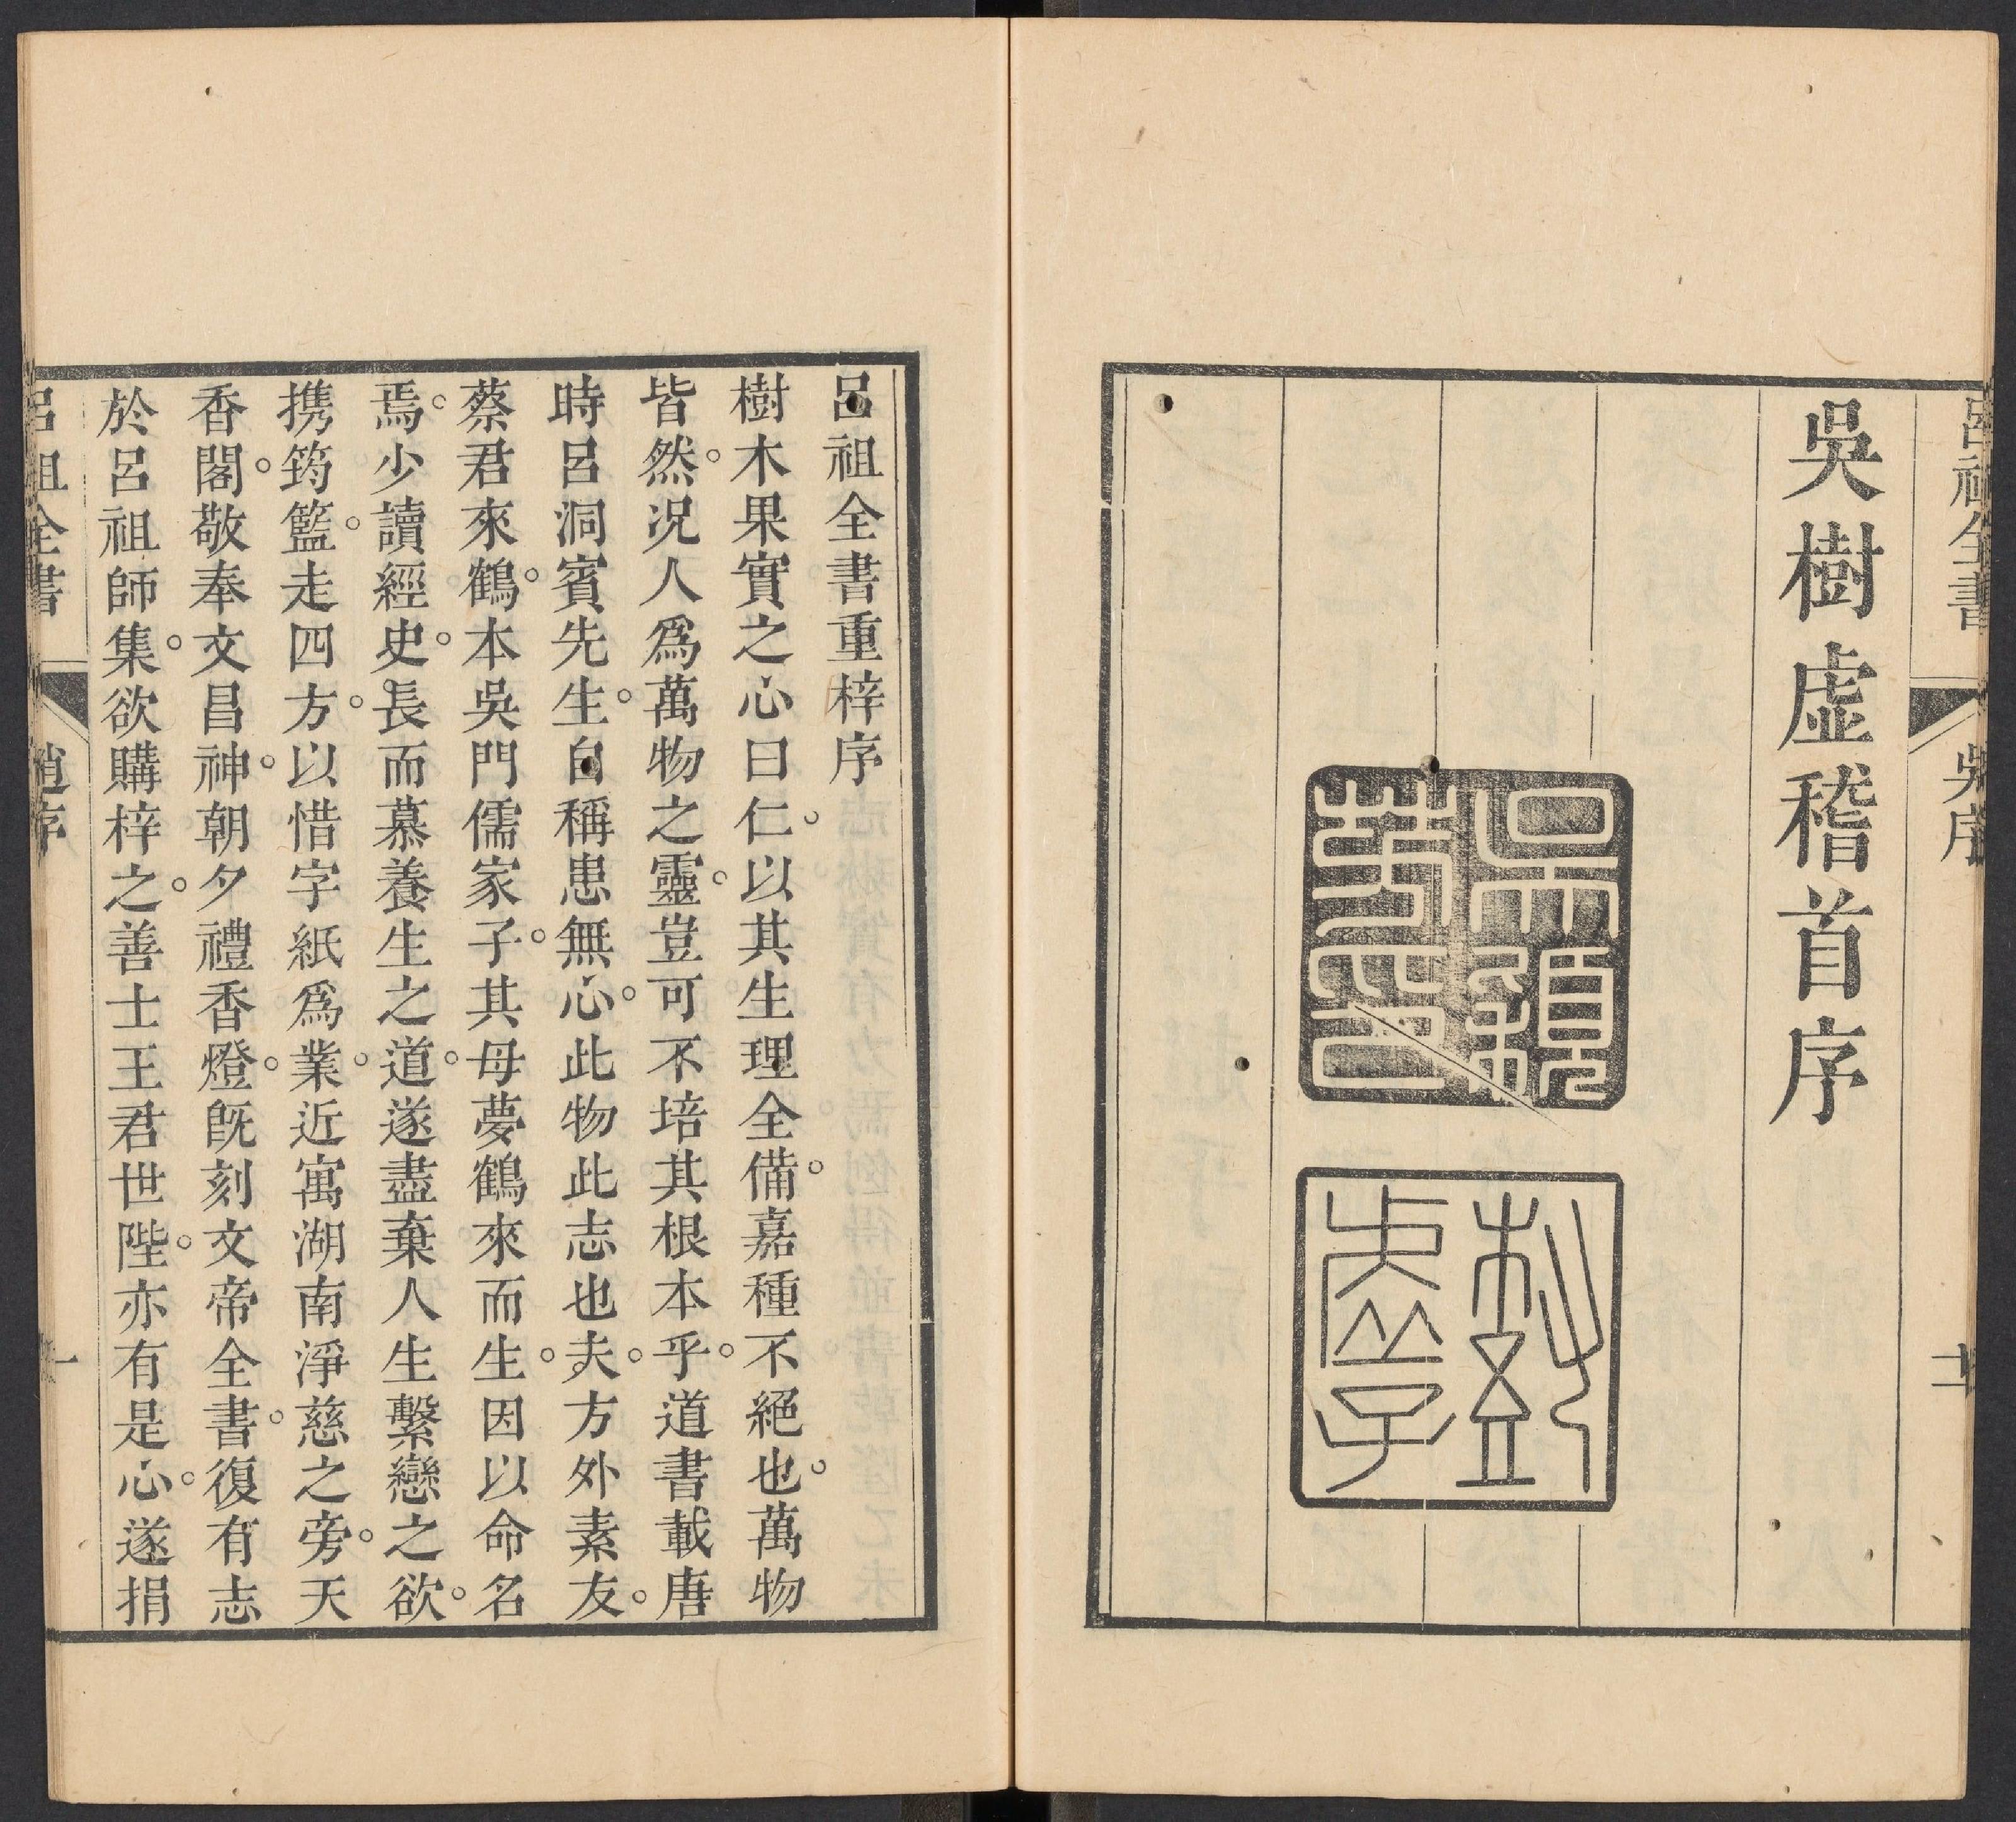 呂祖全書
吳序
十一
吳樹虛稽首序
呂祖全書重梓序
樹木果實之心曰仁。以其生理全備。嘉種不絕也。萬物
皆然。况人爲萬物之靈。豈可不培其根本乎。道書載唐
時呂洞賓先生。自稱患無心。此物此志也。夫方外素友。
蔡君來鶴。本吳門儒家子。其母夢鶴來而生。因以命名
焉。少讀經史。長而慕養生之道。遂盡棄人生繫戀之欲。
携筠籃。走四方。以惜字紙爲業。近寓湖南淨慈之旁。天
香閣。敬奉文昌神。朝夕禮香燈。旣刻文帝全書。復有志
於呂祖師集。欲購梓之。善士王君世陛。亦有是心。遂捐
呂祖全書
趙序
一